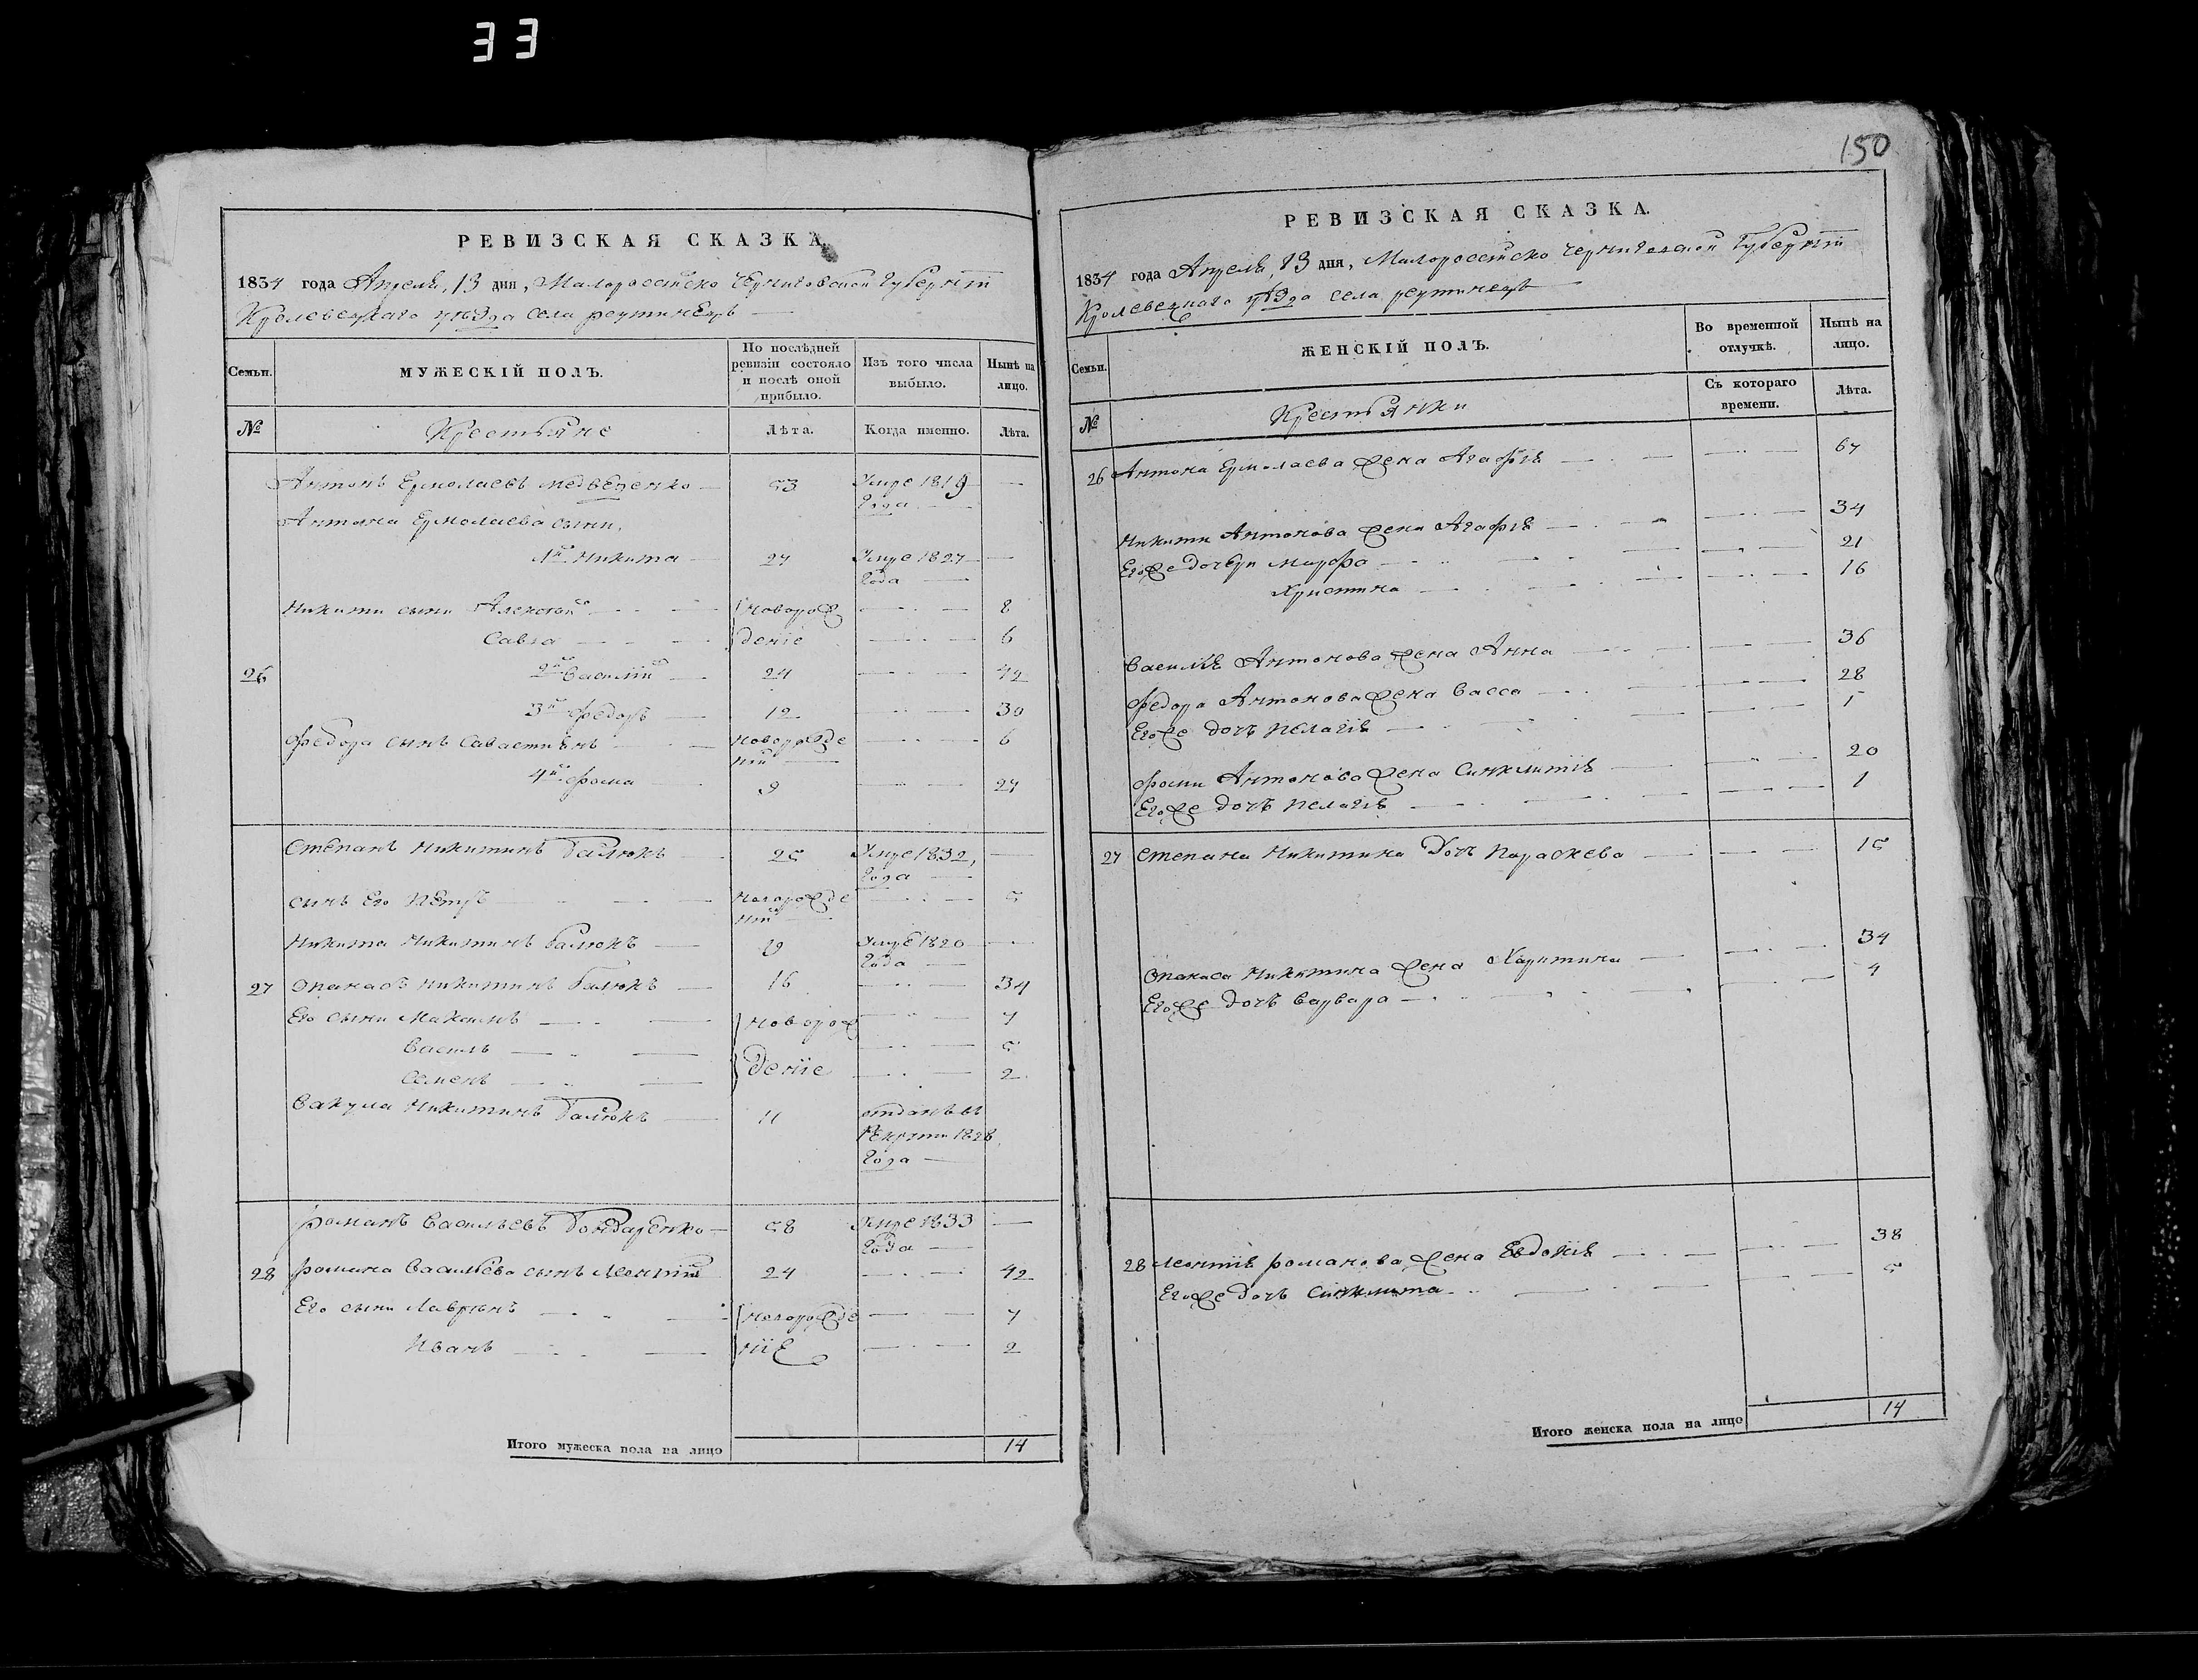 33
150
РЕВИЗСКАЯ СКАЗКА.
1834 года Апреля, 13 дня, Малоросейско Черниговской Губернiи
Кролевецкаго уѣзда села реутинецъ
Семьи. МУЖЕСКІЙ ПОЛЪ. По послѣдней ревизіи состояло и послѣ оной прибыло. Изъ того числа выбыло. Нынѣ на лицо.
№ Крестьяне Лѣта. Когда именно. Лѣта.
Антонъ Ермолаевъ медведенко 53 Умре 1819
Года
Антона Ермолаева сыни,
1й Никита 27 Умре 1827
Года
Никити сыни Алексѣй новорож 8
Савва деніе 6
26 2й Василій 24 42
3й Федоръ 12 30
Федора сынъ Савастиянъ новорожде 6
ній
4й фома 9 27
Степанъ Никитинъ Галюкъ 25 Умре 1832,
Года
сынъ Его Петръ новорожде 5
ній
Никита Никитинъ Галюкъ 19 Умре 1820
Года
27 Опанасъ Никитинъ Галюкъ 16 34
Его сыни Максимъ новорож 7
Василь 5
Семенъ деніе 2
Вакула Никитинъ Галюкъ 11 отданъ въ
Рекрути 1828
Года
романъ Васильевъ Бондаренко 58 Умре 1833
Года
28 романа Васильева сынъ Леонтій 24 42
Его сыни Лаврѣнъ новорожде 7
Иванъ ніе 2
Итого мужеска пола на лицо 14
РЕВИЗСКАЯ СКАЗКА.
1834 года Апреля, 13 дня, Малоросейско Черниговской Губерніи
Кролевецкаго уѣзда села реутинецъ
Семьи. ЖЕНСКІЙ ПОЛЪ. Во временной отлучкѣ. Нынѣ на лицо.
Съ котораго времени. Лѣта.
№ Крестьянки
26 Антона Ермолаева жена Агафія 67
Никити Антонова жена Агафія 34
Его же дочери марфа 21
Христина 16
Василія Антонова жена Анна 36
Федора Антонова жена Васса 28
Его же дочь Пелагія 1
фоми Антонова жена Синклитія 20
Его же дочь Пелагія 1
27 Степана Никитина Дочь Параскева 15
Опанаса Никитина жена Харитина 34
Его же дочь Варвара 4
28 Леонтія романова жена Евдокія 38
Его же дочь Синклита 5
Итого женска пола на лицо 14